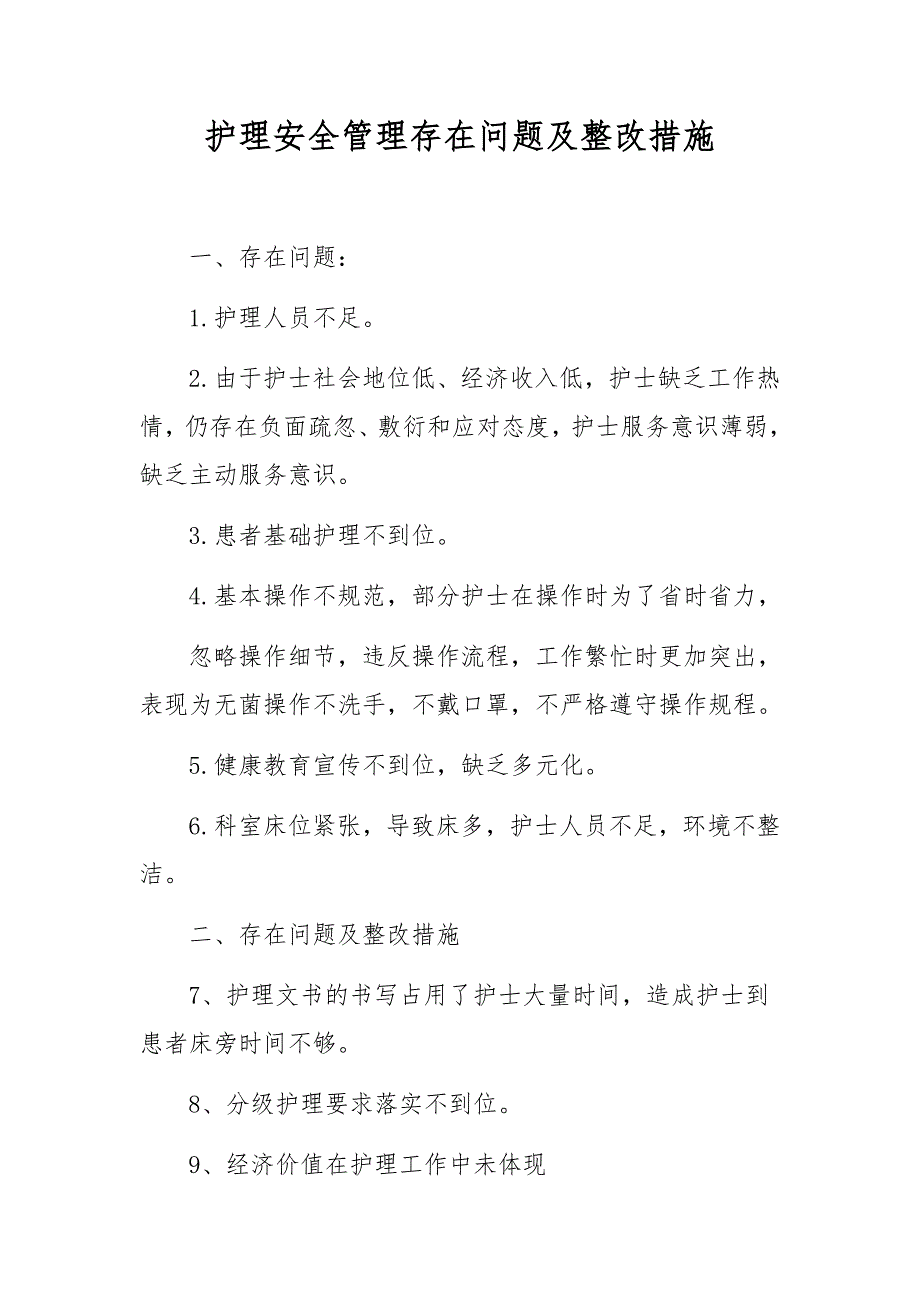 护理安全管理存在问题及整改措施
一、存在问题：
1.护理人员不足。
2.由于护士社会地位低、经济收入低，护士缺乏工作热
情，仍存在负面疏忽、敷衍和应对态度，护士服务意识薄弱，
缺乏主动服务意识。
3.患者基础护理不到位。
4.基本操作不规范，部分护士在操作时为了省时省力，
忽略操作细节，违反操作流程，工作繁忙时更加突出，
表现为无菌操作不洗手，不戴口罩，不严格遵守操作规程。
5.健康教育宣传不到位，缺乏多元化。
6.科室床位紧张，导致床多，护士人员不足，环境不整
洁。
二、存在问题及整改措施
7、护理文书的书写占用了护士大量时间，造成护士到
患者床旁时间不够。
8、分级护理要求落实不到位。
9、经济价值在护理工作中未体现